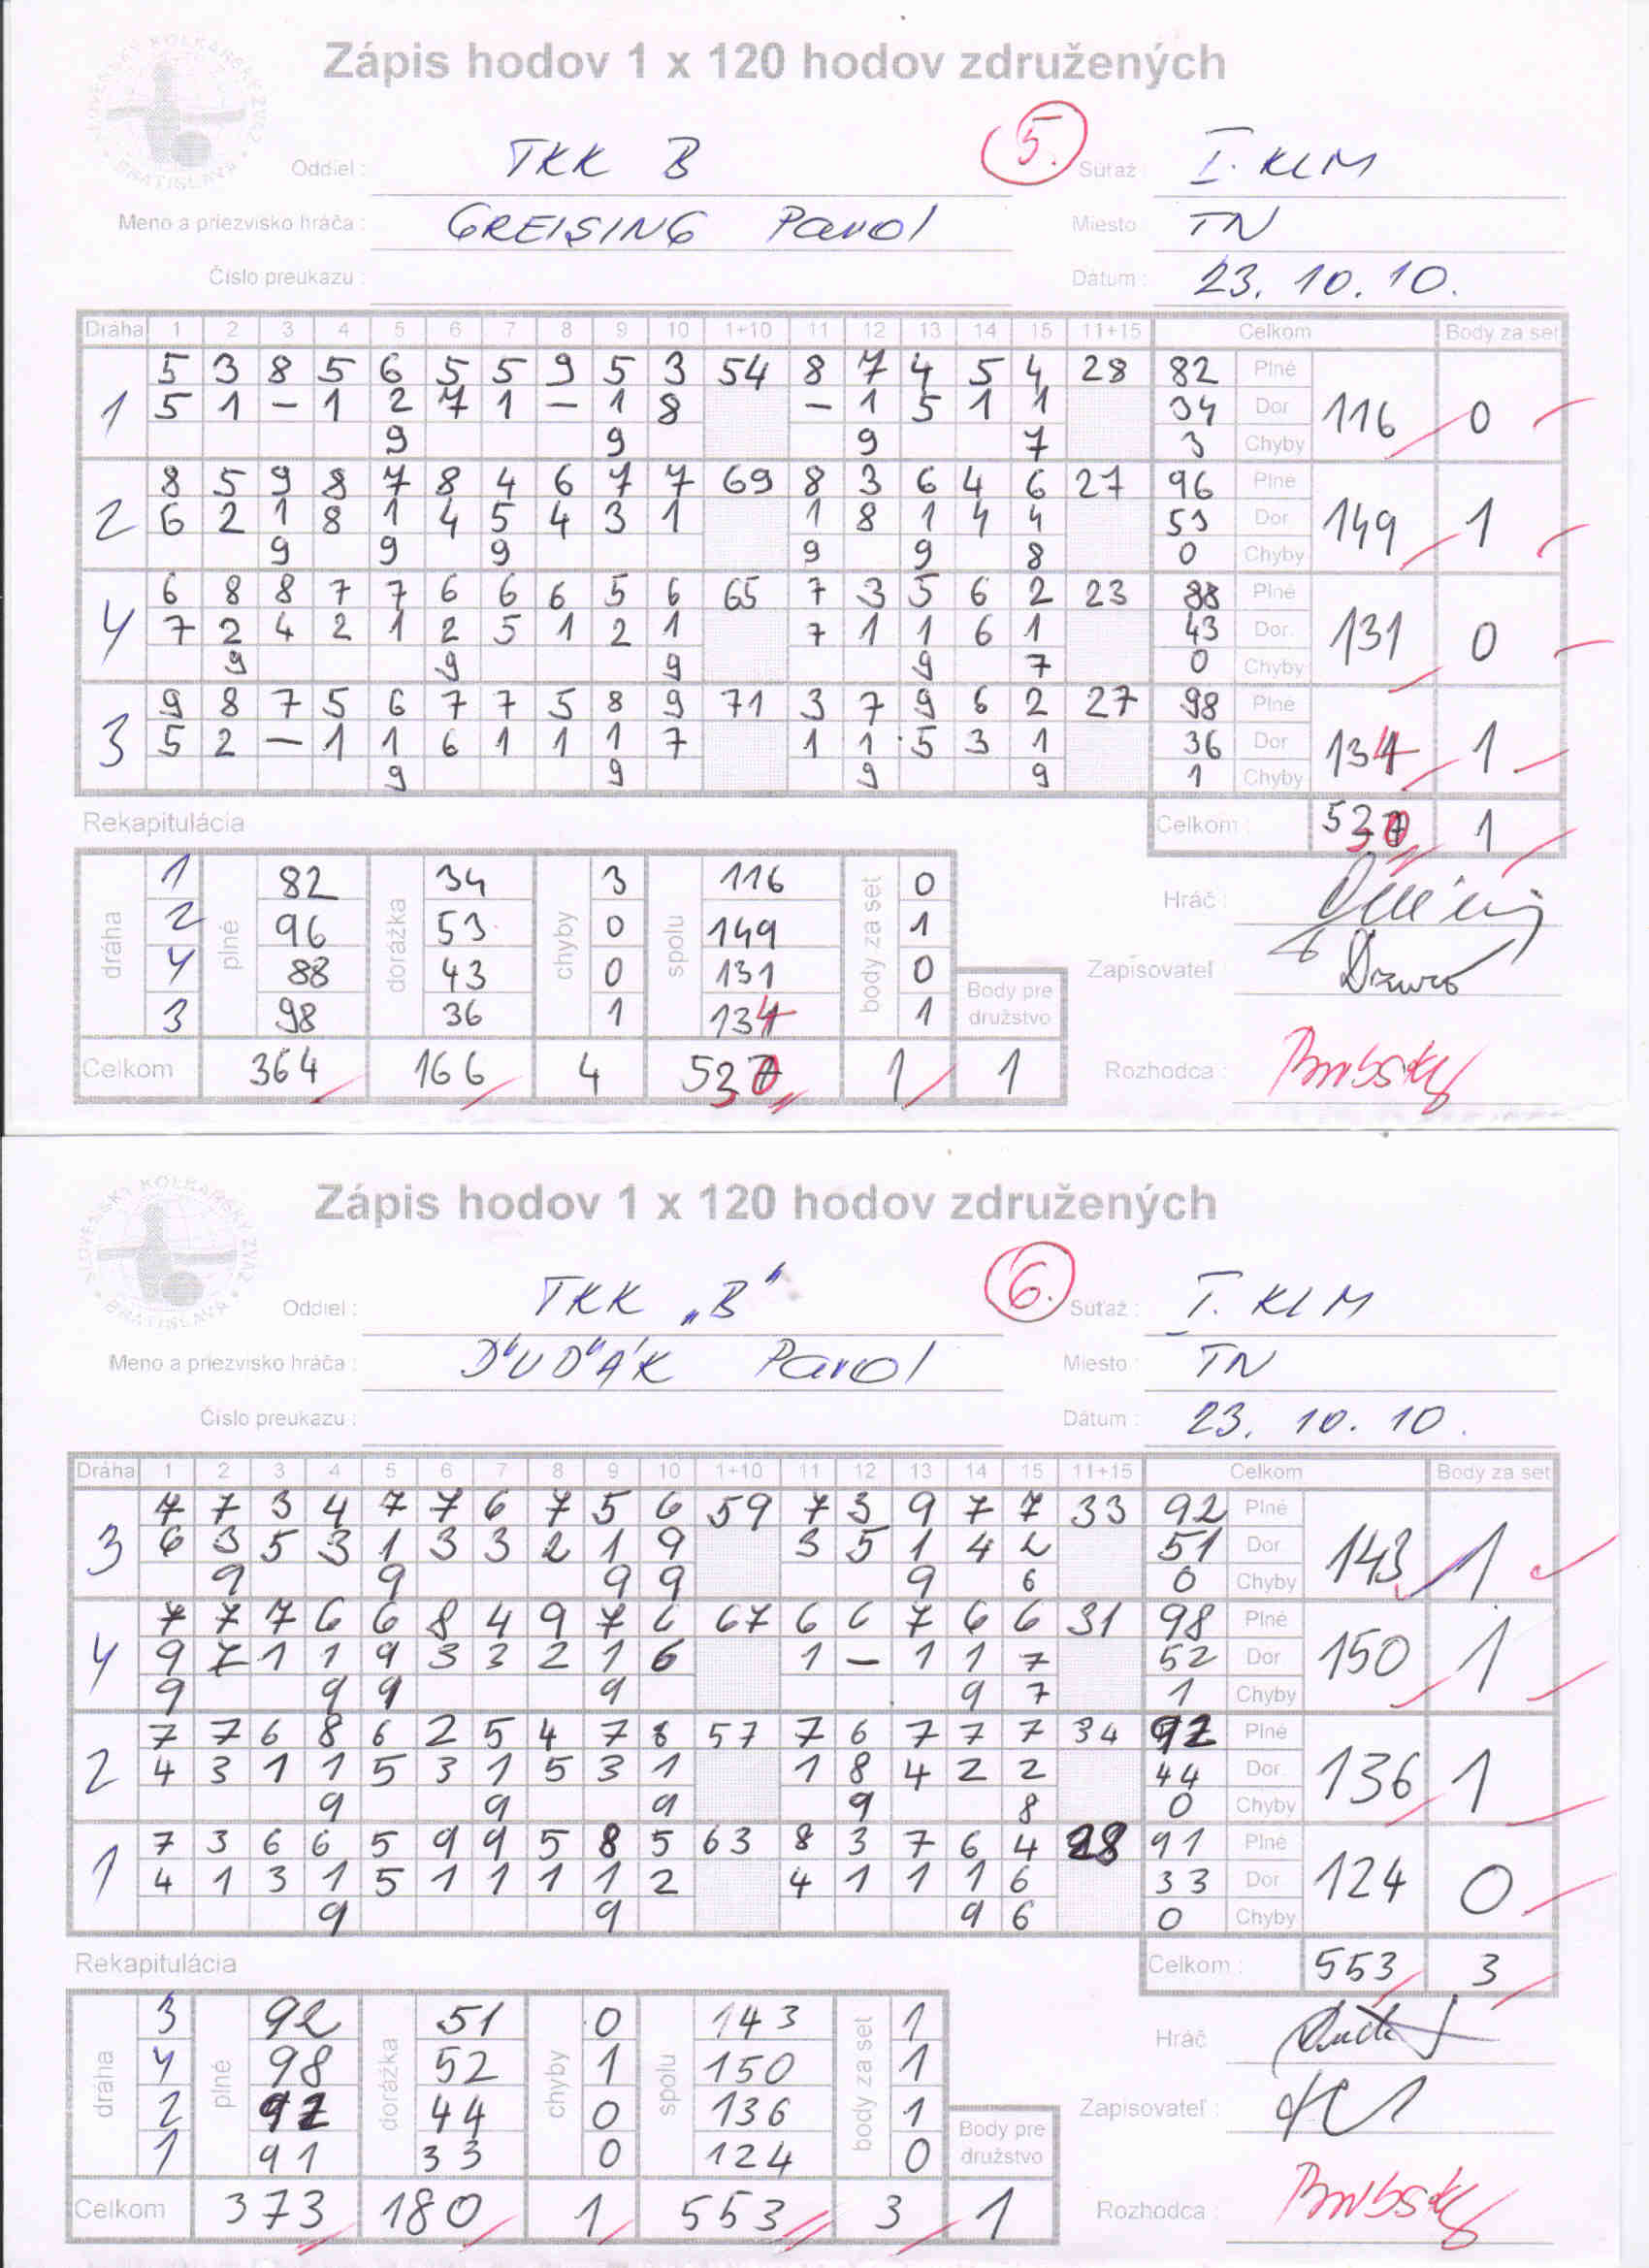 Zápis hodov 1 x 120 hodov združených
Oddiel : TKK B 5. Súťaž : I. KLM
Meno a priezvisko hráča : GREISING Pavol Miesto : TN
Číslo preukazu : Dátum : 23. 10. 10.
Dráha 1 2 3 4 5 6 7 8 9 10 1+10 11 12 13 14 15 11+15 Celkom Body za set
5 3 8 5 6 5 5 9 5 3 54 8 7 4 5 4 28 82 Plné
1 5 1 – 1 2 7 1 – 1 8 – 1 5 1 1 34 Dor 116 0
9 9 9 7 3 Chyby
8 5 9 8 7 8 4 6 7 7 69 8 3 6 4 6 27 96 Plné
2 6 2 1 8 1 4 5 4 3 1 1 8 1 4 4 53 Dor 149 1
9 9 9 9 9 8 0 Chyby
6 8 8 7 7 6 6 6 5 6 65 7 3 5 6 2 23 88 Plné
4 7 2 4 2 1 2 5 1 2 1 7 1 1 6 1 43 Dor. 131 0
9 9 9 9 7 0 Chyby
9 8 7 5 6 7 7 5 8 9 71 3 7 9 6 2 27 98 Plné
3 5 2 – 1 1 6 1 1 1 7 1 1 5 3 1 36 Dor 134 1
9 9 9 9 1 Chyby
Rekapitulácia Celkom : 530 1
dráha plné dorážka chyby spolu body za set
1 82 34 3 116 0
Hráč :
2 96 53 0 149 1
4 88 43 0 131 0
Zapisovateľ
3 98 36 1 134 1
Body pre družstvo
Celkom 364 166 4 530 1 1
Rozhodca :
Zápis hodov 1 x 120 hodov združených
Oddiel : TKK „B" 6. Súťaž : I. KLM
Meno a priezvisko hráča : ĎUĎÁK Pavol Miesto : TN
Číslo preukazu : Dátum : 23. 10. 10.
Dráha 1 2 3 4 5 6 7 8 9 10 1+10 11 12 13 14 15 11+15 Celkom Body za set
7 7 3 4 7 7 6 7 5 6 59 7 3 9 7 7 33 92 Plné
3 6 3 5 3 1 3 3 2 1 9 3 5 1 4 2 51 Dor 143 1
9 9 9 9 9 6 0 Chyby
7 7 7 6 6 8 4 9 7 6 67 6 6 7 6 6 31 98 Plné
4 9 7 1 1 9 3 3 2 1 6 1 – 1 1 7 52 Dor 150 1
9 9 9 9 9 7 1 Chyby
7 7 6 8 6 2 5 4 7 6 57 7 6 7 7 7 34 92 Plné
2 4 3 1 1 5 3 1 5 3 1 1 8 4 2 2 44 Dor. 136 1
9 9 9 9 8 0 Chyby
7 3 6 6 5 9 9 5 8 5 63 8 3 7 6 4 28 91 Plné
1 4 1 3 1 5 1 1 1 1 2 4 1 1 1 6 33 Dor 124 0
9 9 9 6 0 Chyby
Rekapitulácia Celkom : 553 3
dráha plné dorážka chyby spolu body za set
3 92 51 0 143 1
Hráč
4 98 52 1 150 1
2 92 44 0 136 1
Zapisovateľ :
1 91 33 0 124 0
Body pre družstvo
Celkom 373 180 1 553 3 1
Rozhodca :